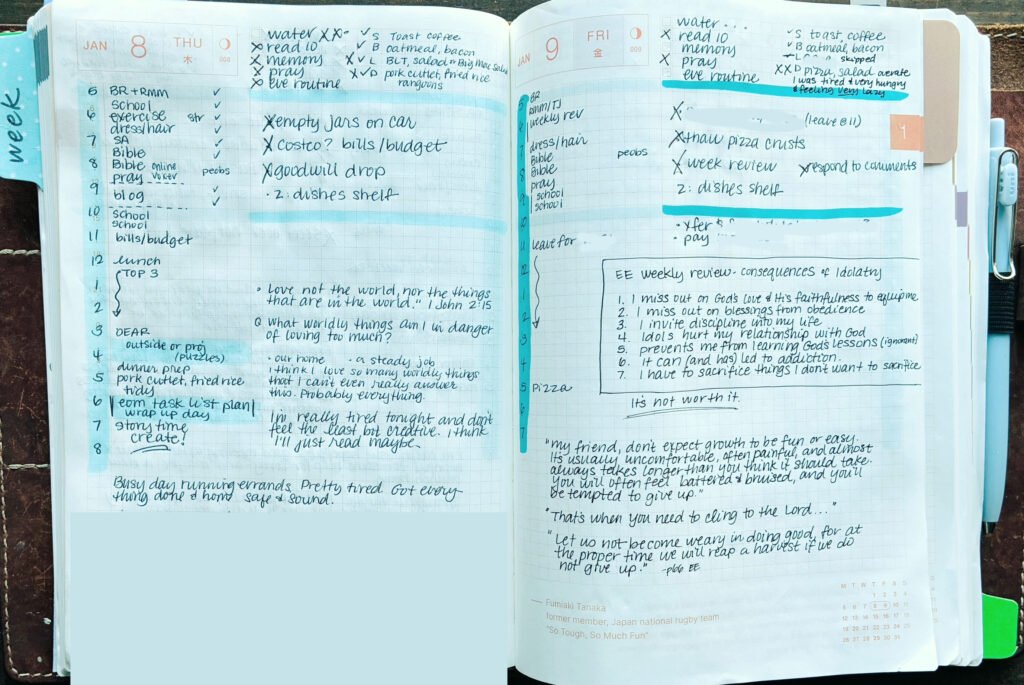 week
JAN 8 THU 木 008
water XX
X read 10
X memory
X pray
X eve routine
✓ S Toast coffee
✓ B oatmeal, bacon
X ✓ L BLT, salad & Big Mac Salad
X ✓ D pork cutlet, fried rice
rangoons
5 BR + RMM ✓
school ✓
6 exercise str ✓
dress/hair ✓
7 SA ✓
Bible ✓
8 Bible online
pray peobs ✓
9 blog ✓
10 school
school
11 bills/budget
12 lunch
TOP 3
1
2
3 DEAR
outside or proj
4 (puzzles)
dinner prep
5 pork cutlet, fried rice
tidy
6 eom task list plan
wrap up day
7 story time
create!
8
X empty jars on car
X costco? bills/budget
X goodwill drop
· 2: dishes shelf
· Love not the world, nor the things
that are in the world." 1 John 2:15
Q What worldly things am I in danger
of loving too much?
· our home · a steady job
I think I love so many worldly things
that I can't even really answer
this. Probably everything.
I'm really tired tonight and don't
feel the least bit creative. I think
I'll just read maybe.
Busy day running errands. Pretty tired. Got every
thing done & home safe & sound.
JAN 9 FRI 金 009
water . . .
X read 10
memory
X pray
eve routine
✓ S toast coffee
✓ B oatmeal, bacon
L skipped
XX D pizza, salad overate
I was tired & very hungry
& feeling very lazy
5 BR
RMM/TJ
6 weekly rev
7 dress/hair
Bible peobs
8 Bible
pray
9 school
school
10
11 leave for
12
1
2
3
4
5 Pizza
6
7
X (leave @ 11)
X thaw pizza crusts
X week review X respond to comments
2: dishes shelf
· Xfer $
· pay
1
EE weekly review - consequences of Idolatry
1. I miss out on God's love & His faithfulness to equip me
2. I miss out on blessings from obedience
3. I invite discipline into my life
4. Idols hurt my relationship with God
5. prevents me from learning God's lessons (ignorant)
6. it can (and has) led to addiction.
7. I have to sacrifice things I don't want to sacrifice
It's not worth it.
"My friend, don't expect growth to be fun or easy.
Its usually uncomfortable, often painful, and almost
always takes longer than you think it should take.
You will often feel battered & bruised, and you'll
be tempted to give up."
"That's when you need to cling to the Lord..."
"Let us not become weary in doing good, for at
the proper time we will reap a harvest if we do
not give up." -p66 EE
Fumiaki Tanaka
former member, Japan national rugby team
"So Tough, So Much Fun"
M T W T F S S
1 2 3 4
5 6 7 8 9 10 11
12 13 14 15 16 17 18
19 20 21 22 23 24 25
26 27 28 29 30 31